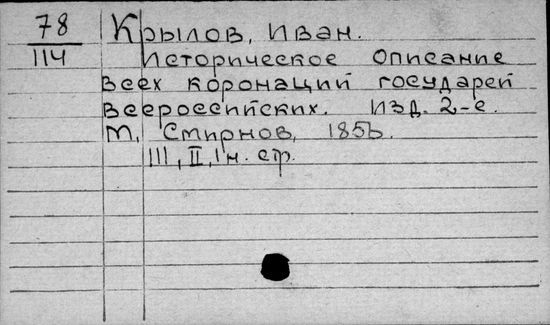 78 Крылов, Иван.
114 Историческое описание
всех коронаций государей
всероссийских. Изд. 2-е.
М, Смирнов, 1856.
III, II, 1 н. стр.